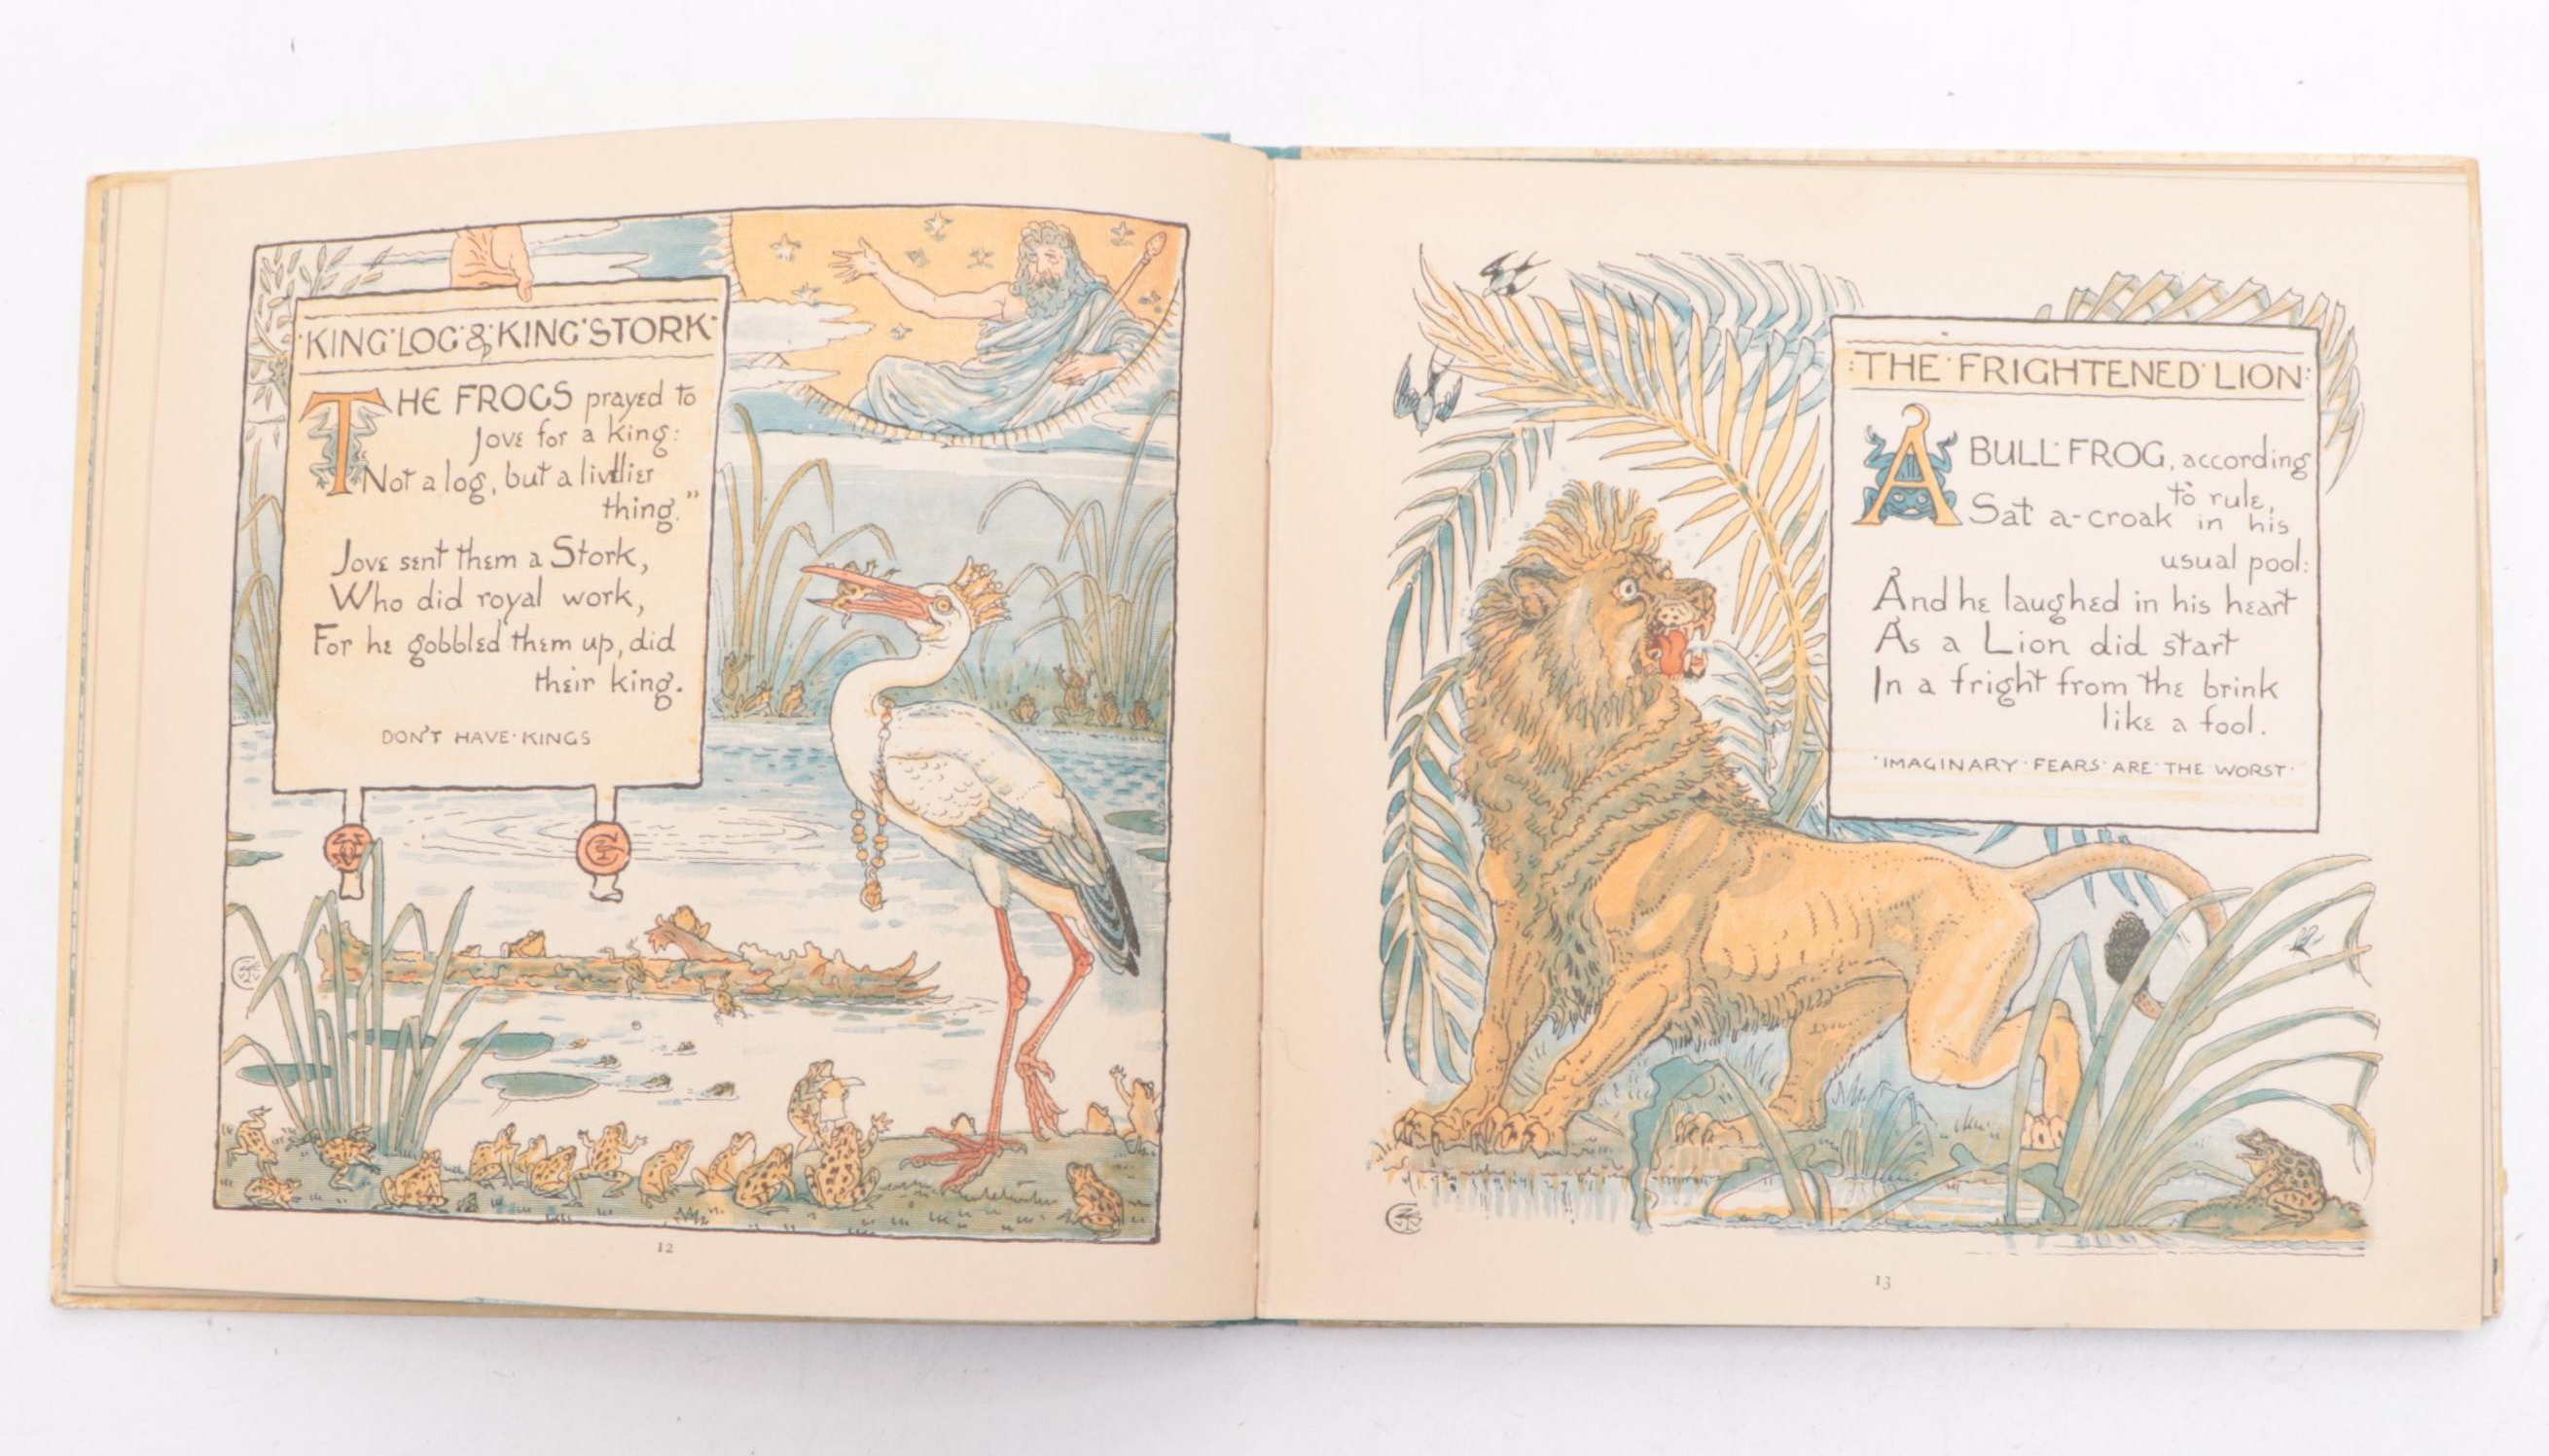 ·KING·LOG·&·KING·STORK·
THE FROGS prayed to
Jove for a king:
"Not a log, but a livelier
thing."
Jove sent them a Stork,
Who did royal work,
For he gobbled them up, did
their king.
DON'T HAVE·KINGS
12
:THE·FRIGHTENED·LION:
A BULL·FROG, according
to rule,
Sat a-croak in his
usual pool:
And he laughed in his heart
As a Lion did start
In a fright from the brink
like a fool.
·IMAGINARY·FEARS·ARE·THE·WORST·
13